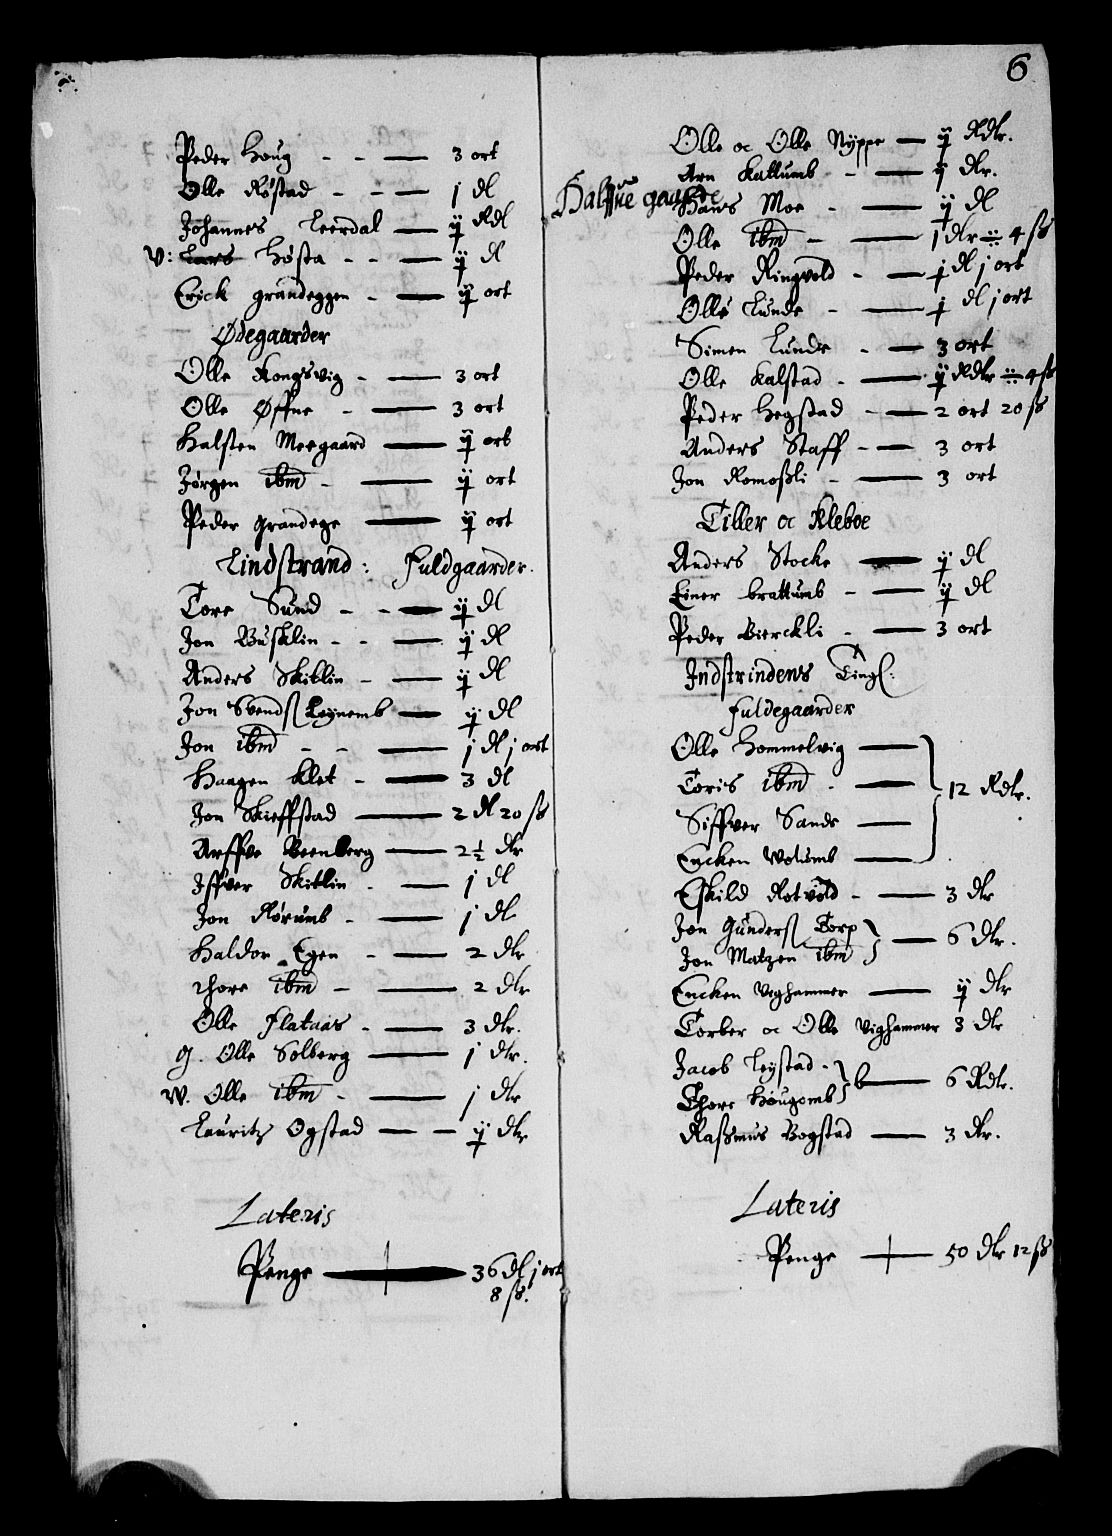 Peder Houg - - — 3 ort
Olle Røstad - - — j dl
Johannes Leerdal — ij Rdl
V: Lars Høsta - - — ij dl
Erick grandeggen - — ij ort
Ødegaarder
Olle Kongsvig - — 3 ort
Olle Øffne - — 3 ort
Halsten Moegaard — ij ort
Jørgen ibm - — ij ort
Peder grandege — ij ort
Lindstrand: Fuldgaarder.
Tore Sund - - — ij dl
Jon Busklin - - — ij dl
Anders Skitlin - — ij dl
Jon Svends Leynemb — ij dl
Jon ibm - - — j dl j ort
Haagen Klet - — 3 dl
Jon Skieffstad — 2 dl 20 ß
Arffve Beenberg — 2½ dlr
Iffver Skitlin - — j dl
Jon Rørumb - — j dl
Haldor Egen - — 2 dlr
Thore ibm - — 2 dlr
Olle Flataas - — 3 dlr.
g. Olle Solberg — j dlr.
W. Olle ibm - — j dlr
Lauritz Ogstad — — ij dlr
Lateris
Penge — 36 dl j ort
8 ß.
6
Olle oc Olle Nyppe — ij Rdlr.
Arn Kattumb - — ij dlr.
Halfue gaarde
Hans Moe - — ij dl
Olle ibm - — j dlr ÷ 4 ß
Peder Ringvold - — j dl j ort
Olle Lunde - — j dl j ort
Simen Lunde - — 3 ort
Olle Kalstad - — ij Rdlr ÷ 4 ß
Peder Hegstad - — 2 ort 20 ß
Anders Staff - — 3 ort
Jon Romoßli - — 3 ort
Tiller oc Kleboe
Anders Stocke — ij dl
Einer brattumb - — ij dl
Peder Bierckli - — 3 ort
Indstrindens Tingl:
Fuldegaarder
Olle Hommelvig —
Toris ibm - — 12 Rdlr.
Siffver Sande —
Encken Wolumb —
Eskild Rotvold - — 3 dlr
Jon Gunders Torp
Jon Matzen ibm — 6 dlr.
Encken Veghammer — ij dlr
Torber oc Olle Vighammer 3 dlr
Jacob Leystad -
Thore Hougomb — 6 Rdlr.
Raßmus Bogstad — 3 dlr.
Lateris
Penge — 50 dlr 12 ß